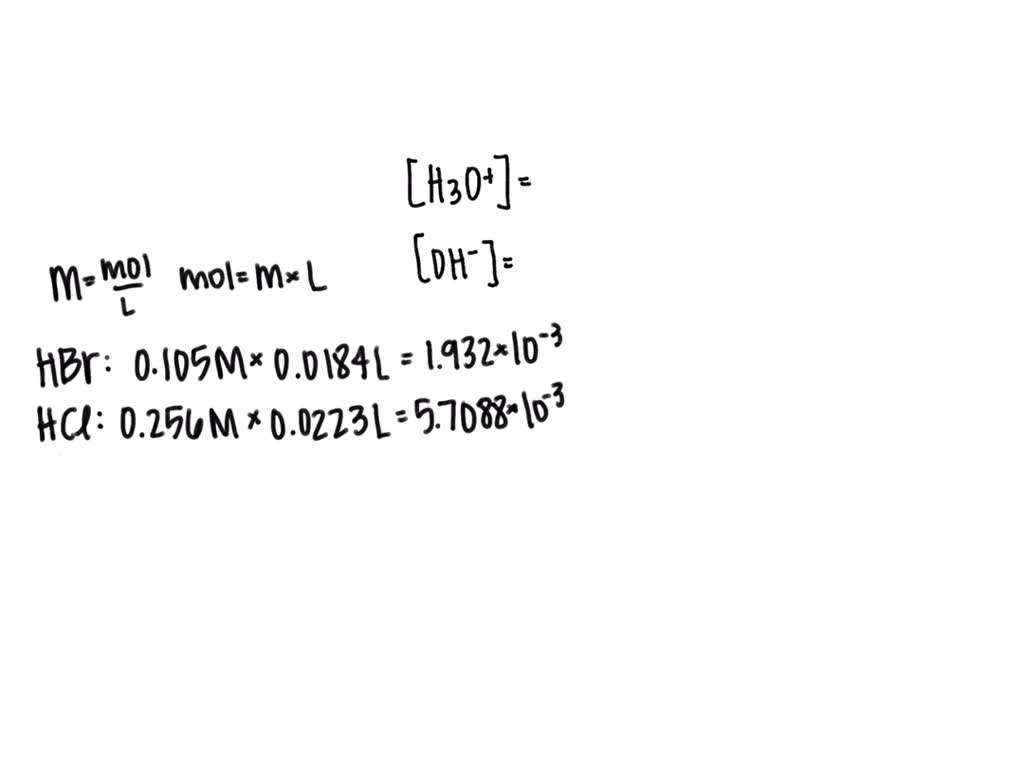 [H3O+]=
[OH-]=
M=mol/L mol=M×L
HBr: 0.105M×0.0184L=1.932×10^-3
HCl: 0.256M×0.0223L=5.7088×10^-3